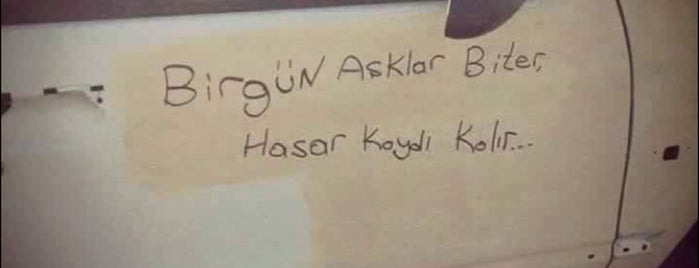 BirgÜN Asklar Biter,
Hasar Kaydı Kalır...